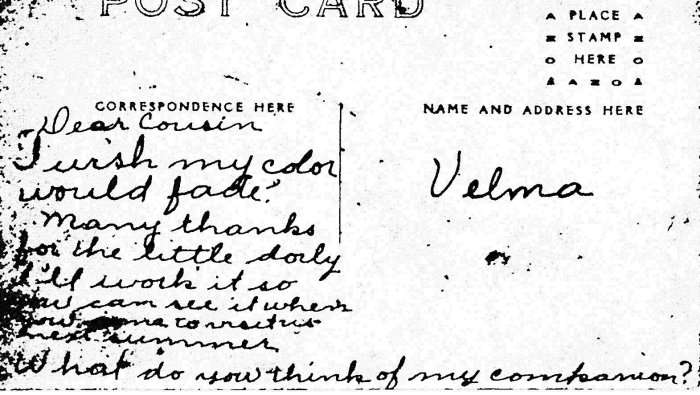 POST CARD
▲ PLACE ▲
STAMP
HERE
AZO
CORRESPONDENCE HERE
NAME AND ADDRESS HERE
Dear Cousin
I wish my color
would fade.
Many thanks
for the little doily
I'll work it so
you can see it when
you come to visit us
next summer
What do you think of my companion?
Velma